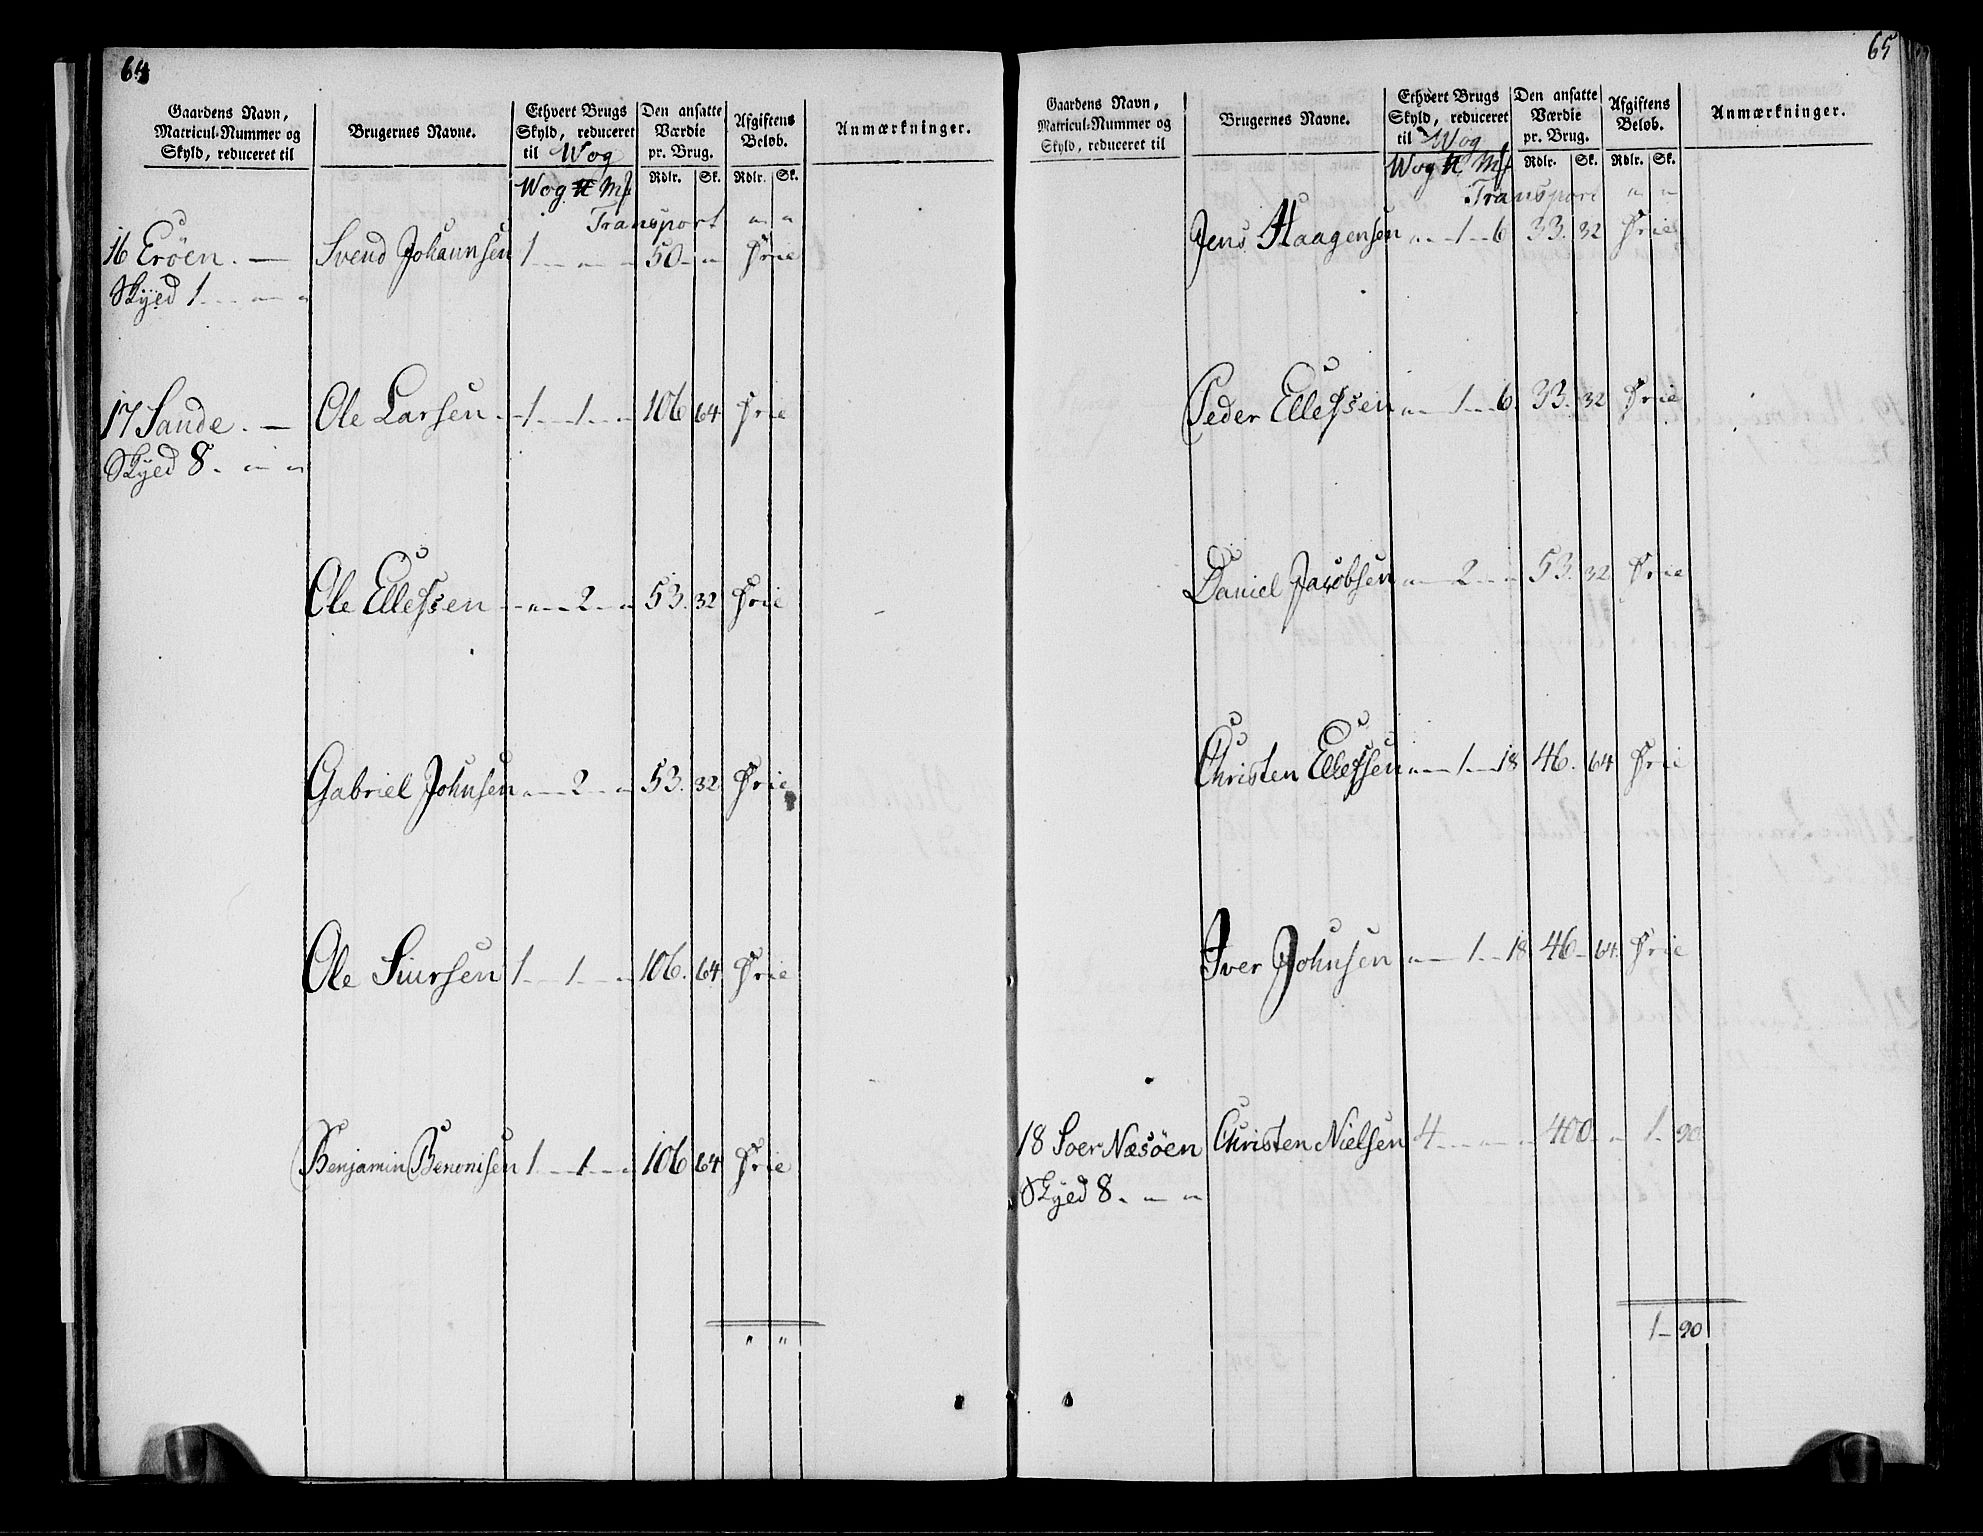 64
Gaardens Navn, Matricul-Nummer og Skyld, reduceret til
Brugernes Navne.
Ethvert Brugs Skyld, reduceret til Wog
Den ansatte Værdie pr. Brug.
Afgiftens Beløb.
Anmærkninger.
Wog ℔ Mk Rdlr. Sk. Rdlr. Sk.
Transport " "
16 Eröen. — Svend Johannsen 1 - " - " 50 - " Frie
Skyld 1 - " "
17 Sande. — Ole Larsen. 1 - 1 - " 106 64 Frie
Skyld 8. " "
Ole Ellefsen " - 2 - " 53. 32 Frie
Gabriel Johnsen " - 2 - " 53. 32 Frie
Ole Siursen 1 - 1 - " 106. 64 Frie
Benjamin Benonisen 1 - 1 - " 106 64 Frie
" "
65
Gaardens Navn, Matricul-Nummer og Skyld, reduceret til
Brugernes Navne.
Ethvert Brugs Skyld, reduceret til Wog
Den ansatte Værdie pr. Brug.
Afgiftens Beløb.
Anmærkninger.
Wog ℔ Mk Rdlr. Sk. Rdlr. Sk.
Transport " "
Jens Haagensen " - 1 - 6 33. 32 Frie
Peder Ellefsen " - 1 - 6. 33. 32 Frie
Daniel Jacobsen " - 2 - " 53. 32 Frie
Christen Ellefsen " - 1 - 18 46. 64 Frie
Iver Johnsen " - 1 - 18 46 - 64. Frie
18 Soer Næsöen Christen Nielsen 4 - " - " 400 - " 1 - 90
Skyld 8. " "
1 - 90